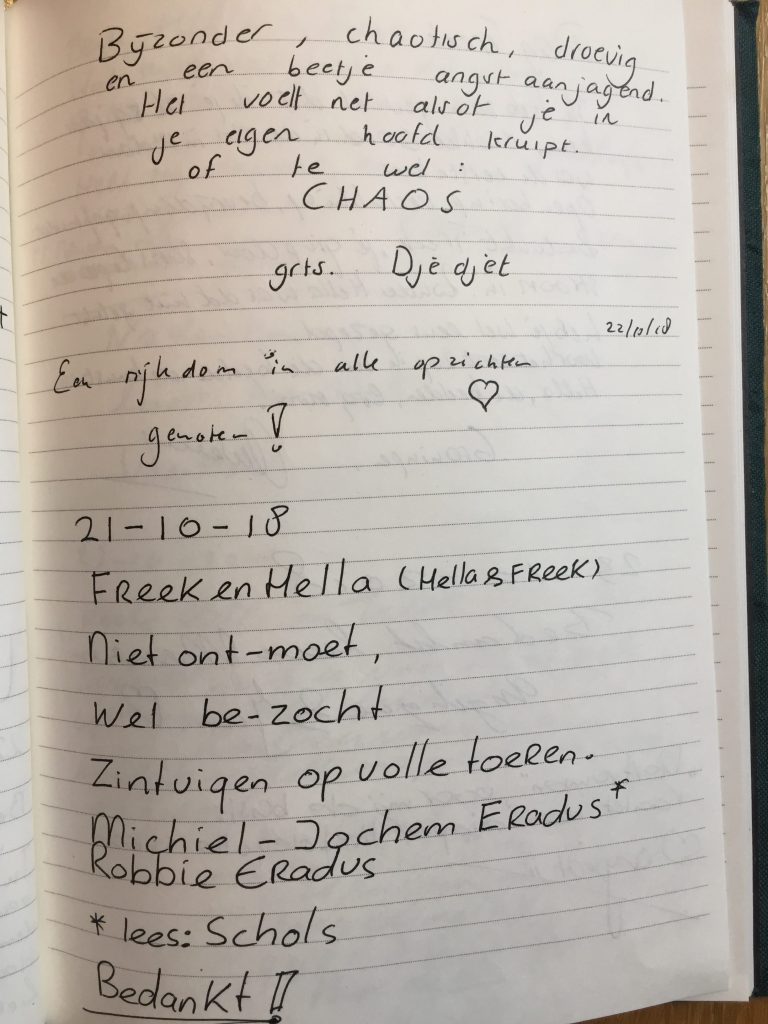 Bijzonder, chaotisch, droevig
en een beetje angst aanjagend.
Het voelt net alsof je in
je eigen hoofd kruipt.
of te wel :
CHAOS
grts. Djë djët
22/10/18
Een rijkdom in alle opzichten
♡
genoten !
21-10-18
FReeK en Hella (Hella & FReeK)
Niet ont-moet,
Wel be-zocht
Zintuigen op volle toeren.
Michiel-Jochem ERadus*
Robbie ERadus
* lees: Schols
BedanKt !!